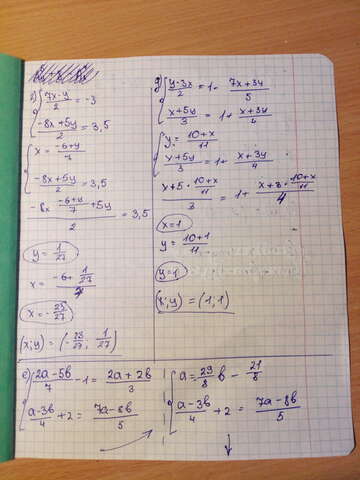 г) { (7x-y)/2 = -3
(-8x+5y)/2 = 3,5
{ x = (-6+y)/7
(-8x+5y)/2 = 3,5
(-8x · (-6+y)/7 + 5y)/2 = 3,5
y = 1/27
x = (-6+1/27)/7
x = -23/27
(x;y) = (-23/27; 1/27)
g) { (y-3x)/2 = 1- (7x+3y)/5
(x+5y)/3 = 1+ (x+3y)/4
{ y = (10+x)/11
(x+5y)/3 = 1+ (x+3y)/4
(x+5·(10+x)/11)/3 = 1+ (x+3·(10+x)/11)/4
x=1
y = (10+1)/11
y=1
(x;y) = (1;1)
е) { (2a-5b)/7 -1 = (2a+2b)/3
(a-3b)/4 +2 = (7a-8b)/5
{ a = 29/8 b - 21/8
(a-3b)/4 +2 = (7a-8b)/5